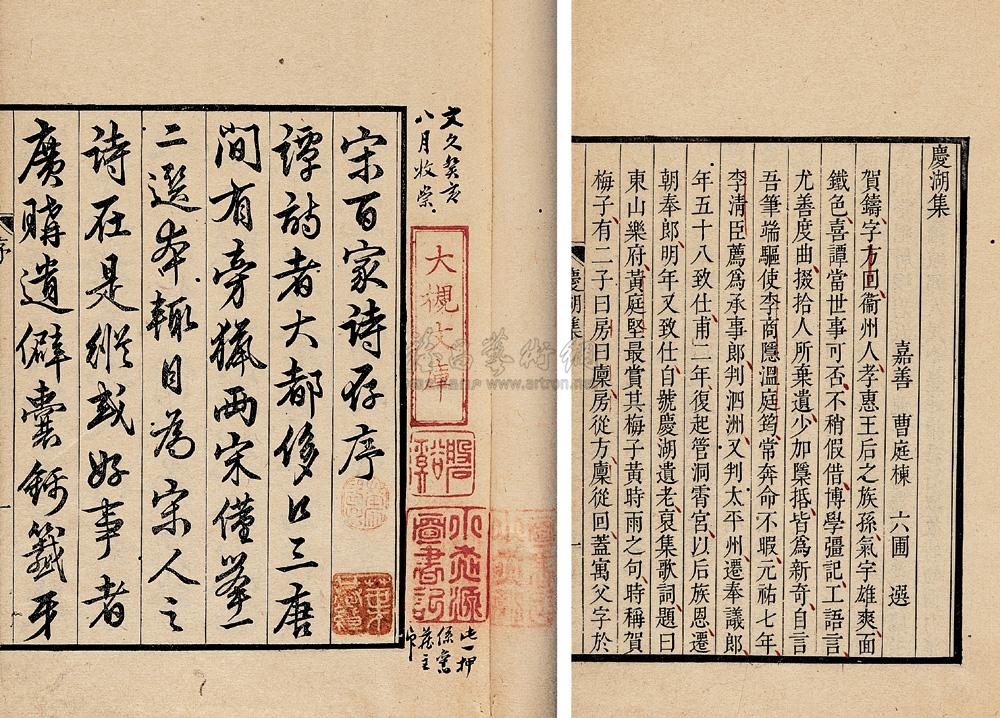 文久癸亥
八月收崇
大槻文庫
磐溪
圖書記
此一押
係舊
藏主
印
宋百家詩存序
譚詩者大都侈口三唐
間有旁獵兩宋僅舉一
二選本輒目為宋人之
詩在是縱或好事者
廣購遺僻囊鈔籖牙
序
一
慶湖集
嘉善 曹庭棟 六圃 選
賀鑄字方回衞州人孝惠王后之族孫氣宇雄爽面
鐵色喜譚當世事可否不稍假借博學彊記工語言
尤善度曲掇拾人所棄遺少加皆爲新奇自言
吾筆端驅使李商隱溫庭筠常奔命不暇元祐七年
李清臣薦爲承事郎判泗洲又判太平州遷奉議郎
年五十八致仕甫二年復起管洞霄宮以后族恩遷
朝奉郎明年又致仕自號慶湖遺老裒集歌詞題曰
東山樂府黃庭堅最賞其梅子黃時雨之句時稱賀
梅子有二子曰房曰廩房從方廩從回蓋寓父字於
慶湖集
一
www.artron.net